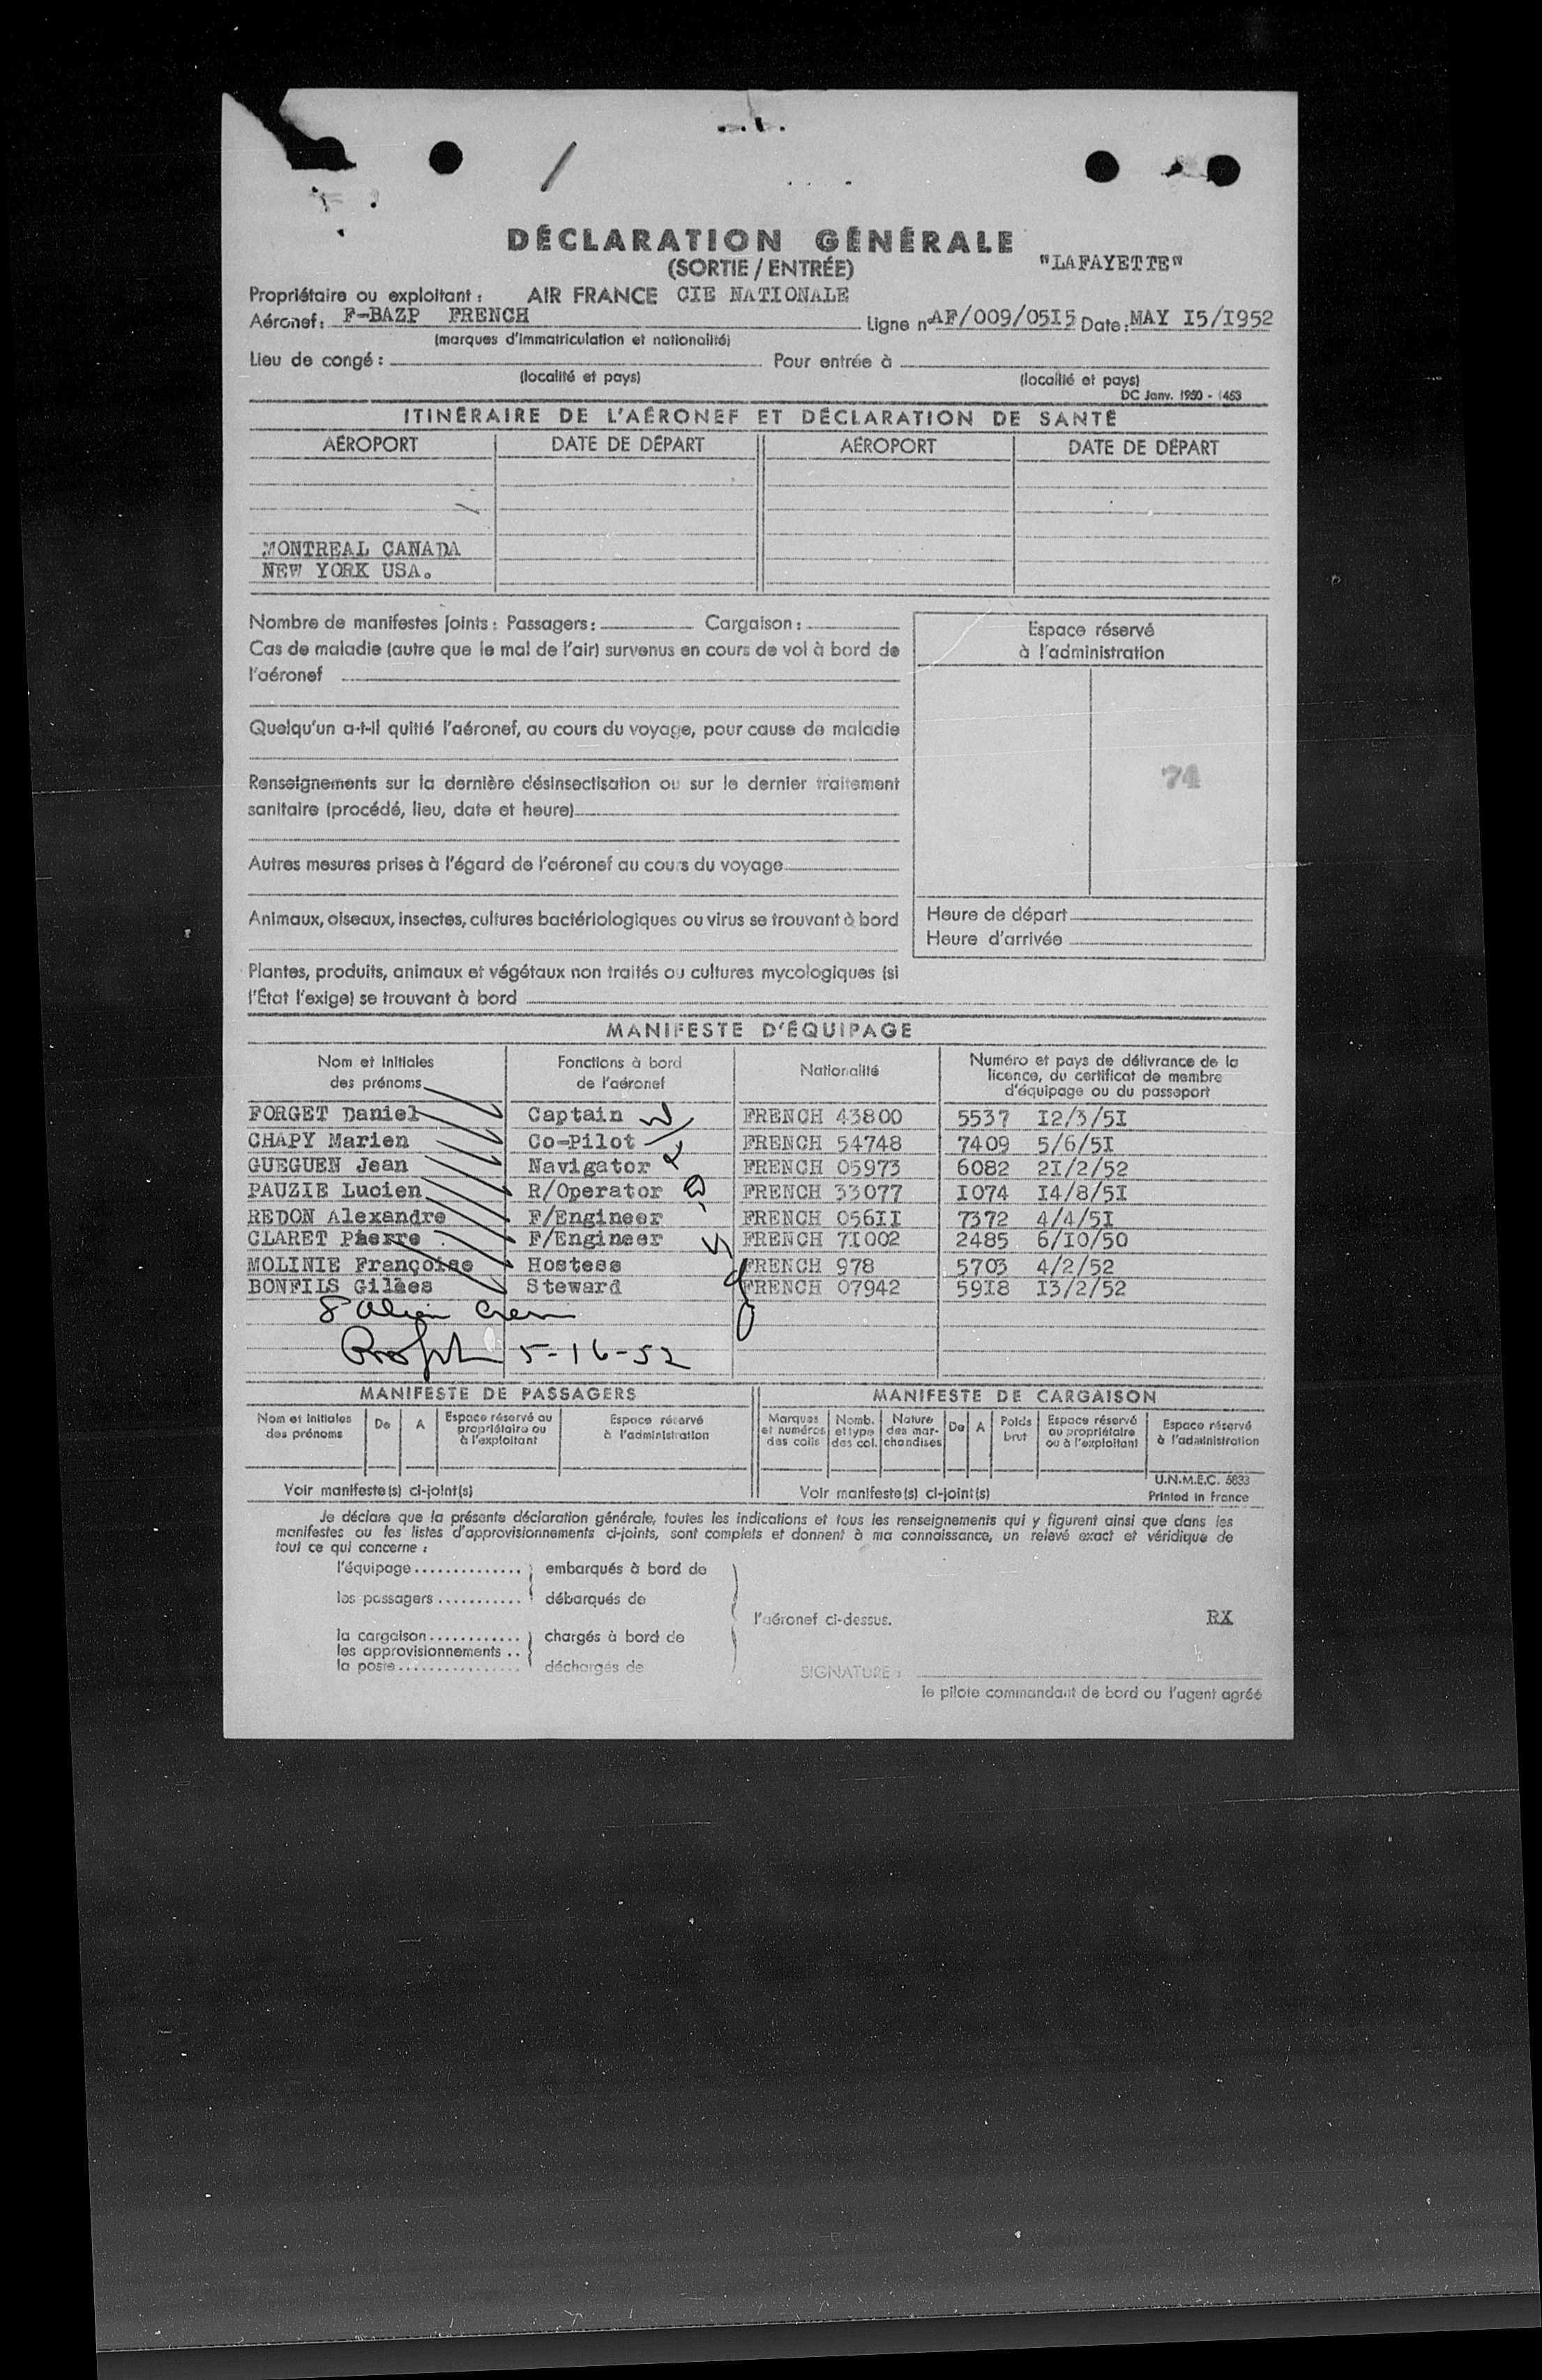 DÉCLARATION GÉNÉRALE
(SORTIE / ENTRÉE)
"LAFAYETTE"
Propriétaire ou exploitant : AIR FRANCE CIE NATIONALE
Aéronef : F-BAZP FRENCH Ligne n° AF/009/05I5 Date : MAY I5/I952
(marques d'immatriculation et nationalité)
Lieu de congé : Pour entrée à
(localité et pays) (localité et pays)
DC Janv. 1950 - 1453
ITINÉRAIRE DE L'AÉRONEF ET DÉCLARATION DE SANTÉ
AÉROPORT DATE DE DÉPART AÉROPORT DATE DE DÉPART
MONTREAL CANADA
NEW YORK USA.
Nombre de manifestes joints : Passagers : Cargaison :
Cas de maladie (autre que le mal de l'air) survenus en cours de vol à bord de
l'aéronef
Quelqu'un a-t-il quitté l'aéronef, au cours du voyage, pour cause de maladie
Renseignements sur la dernière désinsectisation ou sur le dernier traitement
sanitaire (procédé, lieu, date et heure)
Autres mesures prises à l'égard de l'aéronef au cours du voyage
Animaux, oiseaux, insectes, cultures bactériologiques ou virus se trouvant à bord
Plantes, produits, animaux et végétaux non traités ou cultures mycologiques (si
l'État l'exige) se trouvant à bord
Espace réservé
à l'administration
74
Heure de départ
Heure d'arrivée
MANIFESTE D'ÉQUIPAGE
Nom et initiales
des prénoms
Fonctions à bord
de l'aéronef
Nationalité
Numéro et pays de délivrance de la
licence, du certificat de membre
d'équipage ou du passeport
FORGET Daniel Captain FRENCH 43800 5537 I2/3/5I
CHAPY Marien Co-Pilot FRENCH 54748 7409 5/6/5I
GUEGUEN Jean Navigator FRENCH 05973 6082 2I/2/52
PAUZIE Lucien R/Operator FRENCH 33077 I074 I4/8/5I
REDON Alexandre F/Engineer FRENCH 056II 7372 4/4/5I
CLARET Pierre F/Engineer FRENCH 7I002 2485 6/I0/50
MOLINIE Françoise Hostess FRENCH 978 5703 4/2/52
BONFILS Gilles Steward FRENCH 07942 59I8 I3/2/52
8 Alien Crew
5-16-52
MANIFESTE DE PASSAGERS MANIFESTE DE CARGAISON
Nom et initiales
des prénoms
De
A
Espace réservé au
propriétaire ou
à l'exploitant
Espace réservé
à l'administration
Marques
et numéros
des colis
Nomb.
et type
des col.
Nature
des mar-
chandises
De
A
Poids
brut
Espace réservé
au propriétaire
ou à l'exploitant
Espace réservé
à l'administration
Voir manifeste(s) ci-joint(s) Voir manifeste(s) ci-joint(s)
U.N.M.E.C. 5833
Printed in France
Je déclare que la présente déclaration générale, toutes les indications et tous les renseignements qui y figurent ainsi que dans les
manifestes ou les listes d'approvisionnements ci-joints, sont complets et donnent à ma connaissance, un relevé exact et véridique de
tout ce qui concerne :
l'équipage .............. embarqués à bord de
les passagers ........... débarqués de
l'aéronef ci-dessus.
RX
la cargaison ............ chargés à bord de
les approvisionnements ..
la poste ................ déchargés de
SIGNATURE :
le pilote commandant de bord ou l'agent agréé